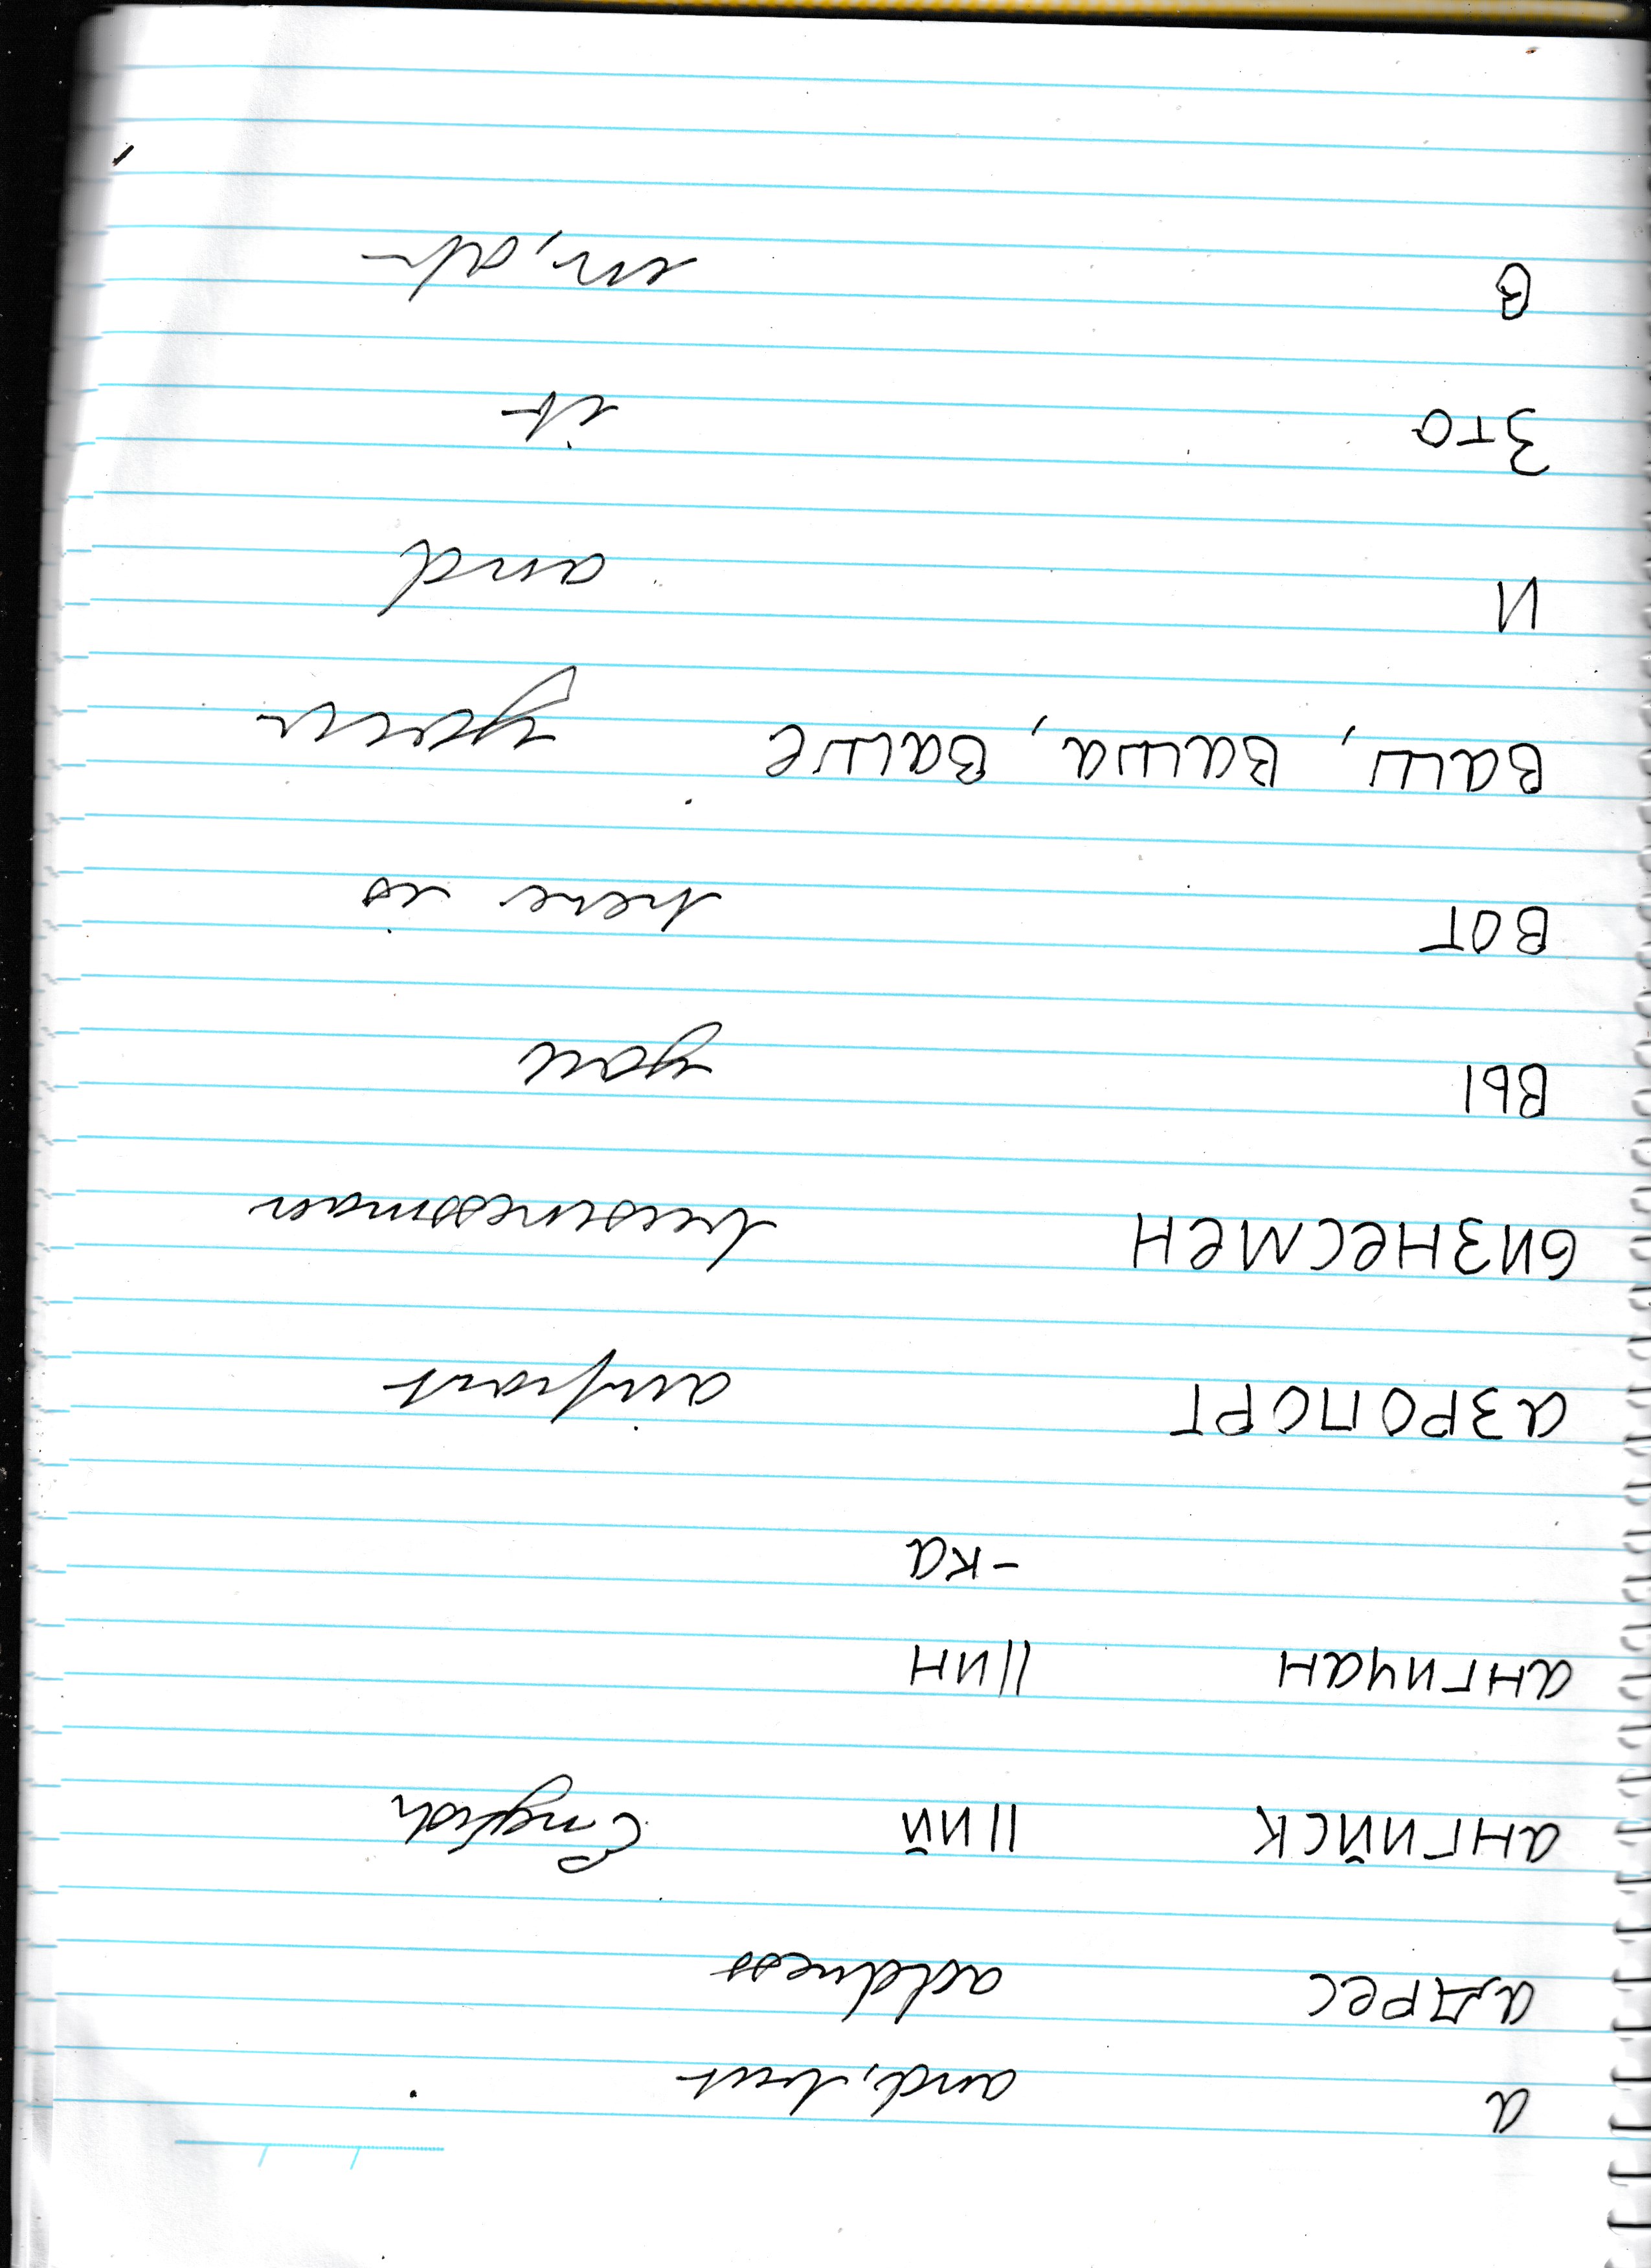 а and, but
адрес address
ангийск ||ий English
ангичан ||ин
-ка
азропорт airport
бизнесмен businessman
вы you
вот here is
ваш, ваша, ваше your
и and
Зто it
в in, at